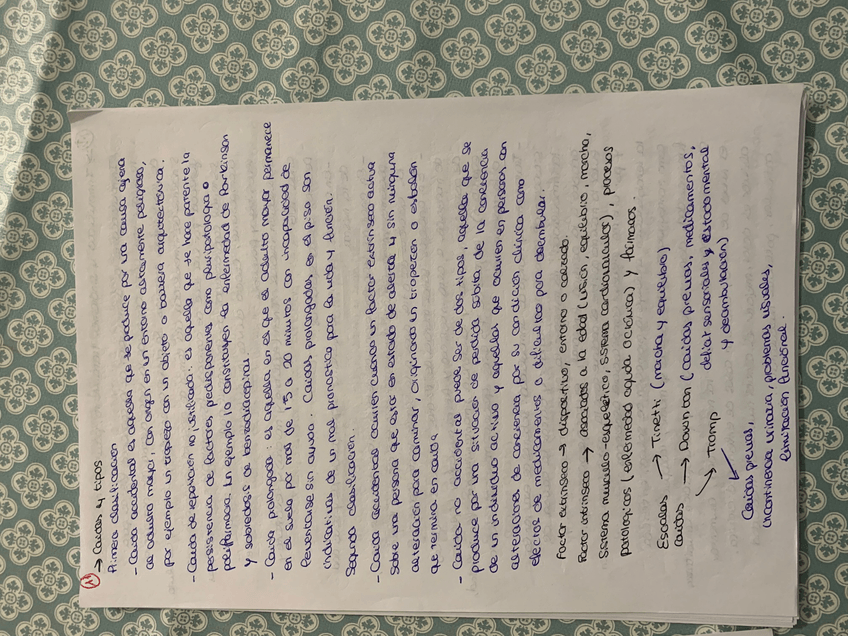 11 → Caídas y tipos
Primera clasificación
- Caída accidental es aquella que se produce por una causa ajena
al adulto mayor, con origen en un entorno altamente peligroso,
por ejemplo un tropiezo con un objeto o barrera arquitectónica.
- Caída de repetición no justificada: es aquella que se hace patente la
persistencia de factores predisponentes como pluripatología o
polifarmacia. Un ejemplo lo constituyen la enfermedad de Parkinson
y sobredosis de benzodiacepinas.
- Caída prolongada: es aquella en el que el adulto mayor permanece
en el suelo por más de 15 a 20 minutos con incapacidad de
levantarse sin ayuda. Caídas prolongadas en el piso son
indicativas de un mal pronóstico para la vida y función.
Segunda clasificación.
- Caída accidental ocurren cuando un factor extrínseco actúa
sobre una persona que está en estado de alerta y sin ninguna
alteración para caminar, originando un tropezón o resbalón
que termina en caída.
- Caída no accidental puede ser de dos tipos, aquella que se
produce por una situación de pérdida súbita de la conciencia
de un individuo activo y aquellas que ocurren en personas con
alteraciones de conciencia por su condición clínica como
efectos de medicamentos o dificultad para deambular.
Factor extrínseco → dispositivo, entorno o calzado.
Factor intrínseco → asociados a la edad (visión, equilibrio, marcha,
sistema musculo-esquelético, sistema cardiovascular), procesos
patológicos (enfermedad aguda o crónica) y fármacos.
Escalas → Tinetti (marcha y equilibrio)
caídas → Downton (caídas previas, medicamentos,
déficit sensoriales y estado mental
→ Tromp y deambulación)
Caídas previas,
incontinencia urinaria, problemas visuales,
limitación funcional.